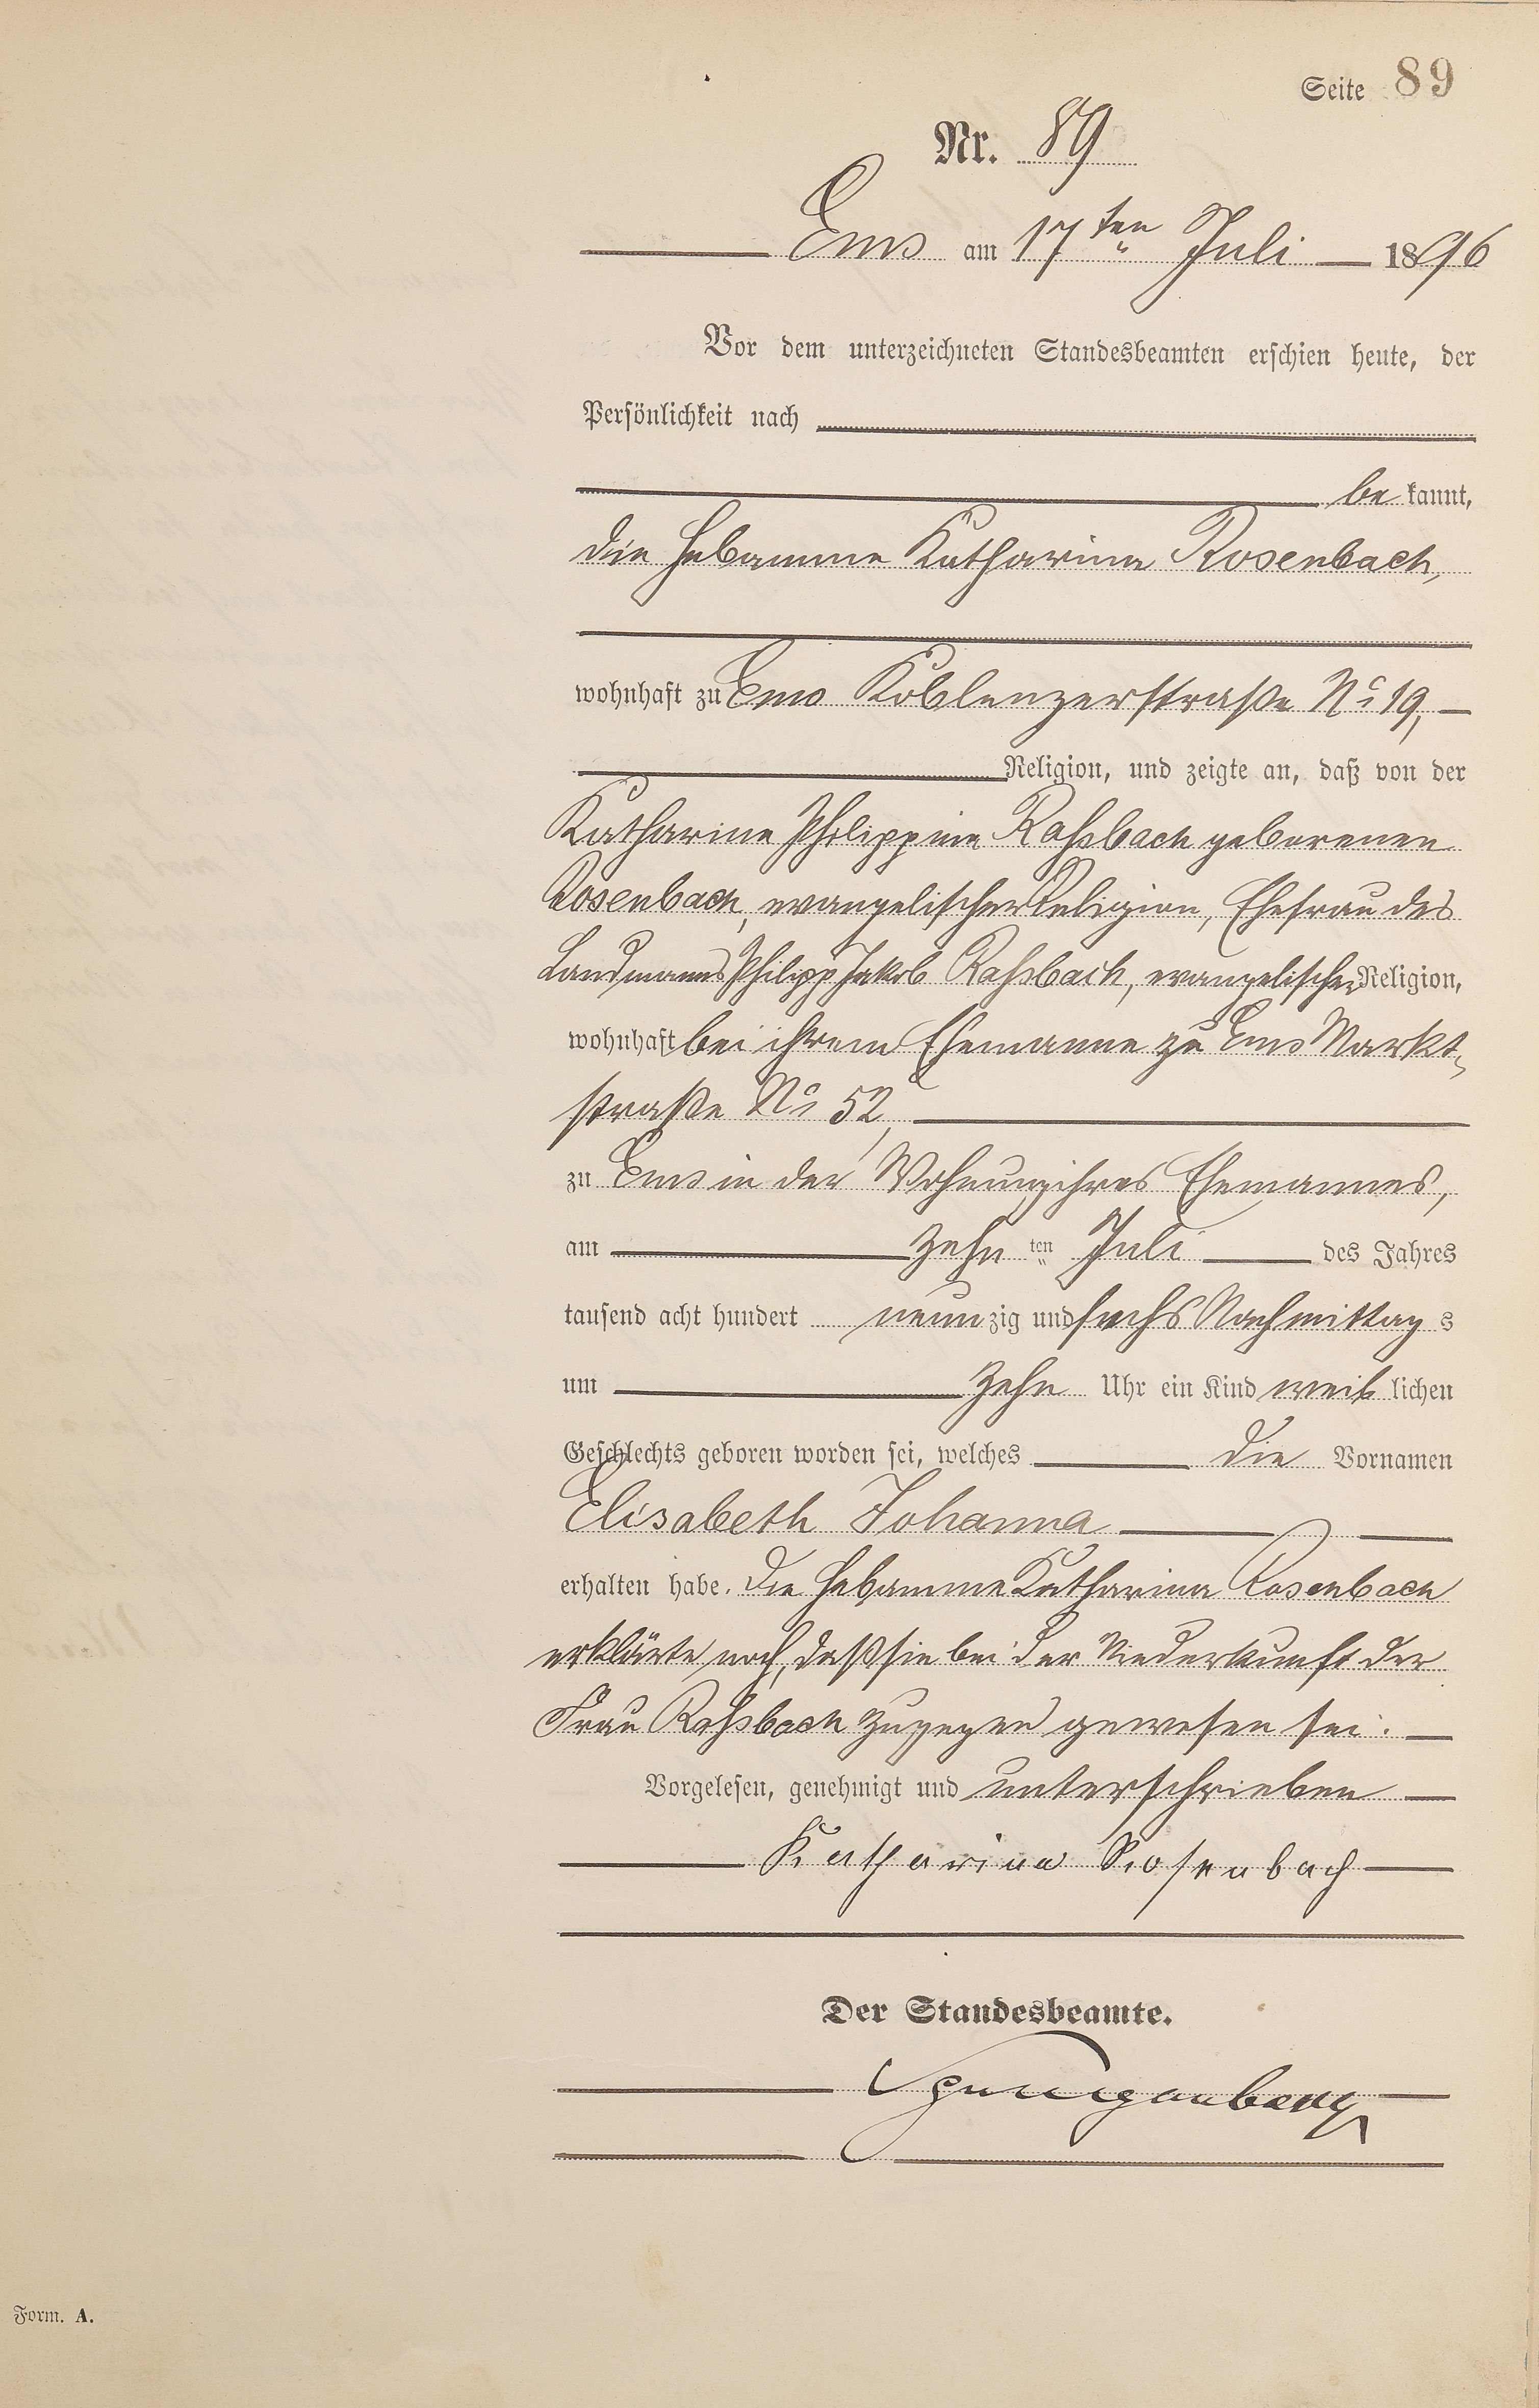 Seite 89
Nr. 89
Ems am 17ten Juli 1896
Vor dem unterzeichneten Standesbeamten erschien heute, der
Persönlichkeit nach
bekannt,
die Hebamme Katharina Rosenbach,
wohnhaft zu Ems Koblenzerstraße No 19,
Religion, und zeigte an, daß von der
Katharine Philippine Rahsbach geborenen
Rosenbach, evangelischer Religion, Ehefrau des
Landmanns Philipp Jakob Rahsbach, evangelischer Religion,
wohnhaft bei ihrem Ehemanne zu Ems Markt-
straße No 52,
zu Ems in der Wohnung ihres Ehemannes,
am zehn ten Juli des Jahres
tausend acht hundert neunzig und sechs Nachmittags
um zehn Uhr ein Kind weiblichen
Geschlechts geboren worden sei, welches die Vornamen
Elisabeth Johanna
erhalten habe. Die Hebamme Katharina Rosenbach
erklärte noch, daß sie bei der Niederkunft der
Frau Rahsbach zugegen gewesen sei.
Vorgelesen, genehmigt und unterschrieben
Katharina Rosenbach
Der Standesbeamte.
Form. A.